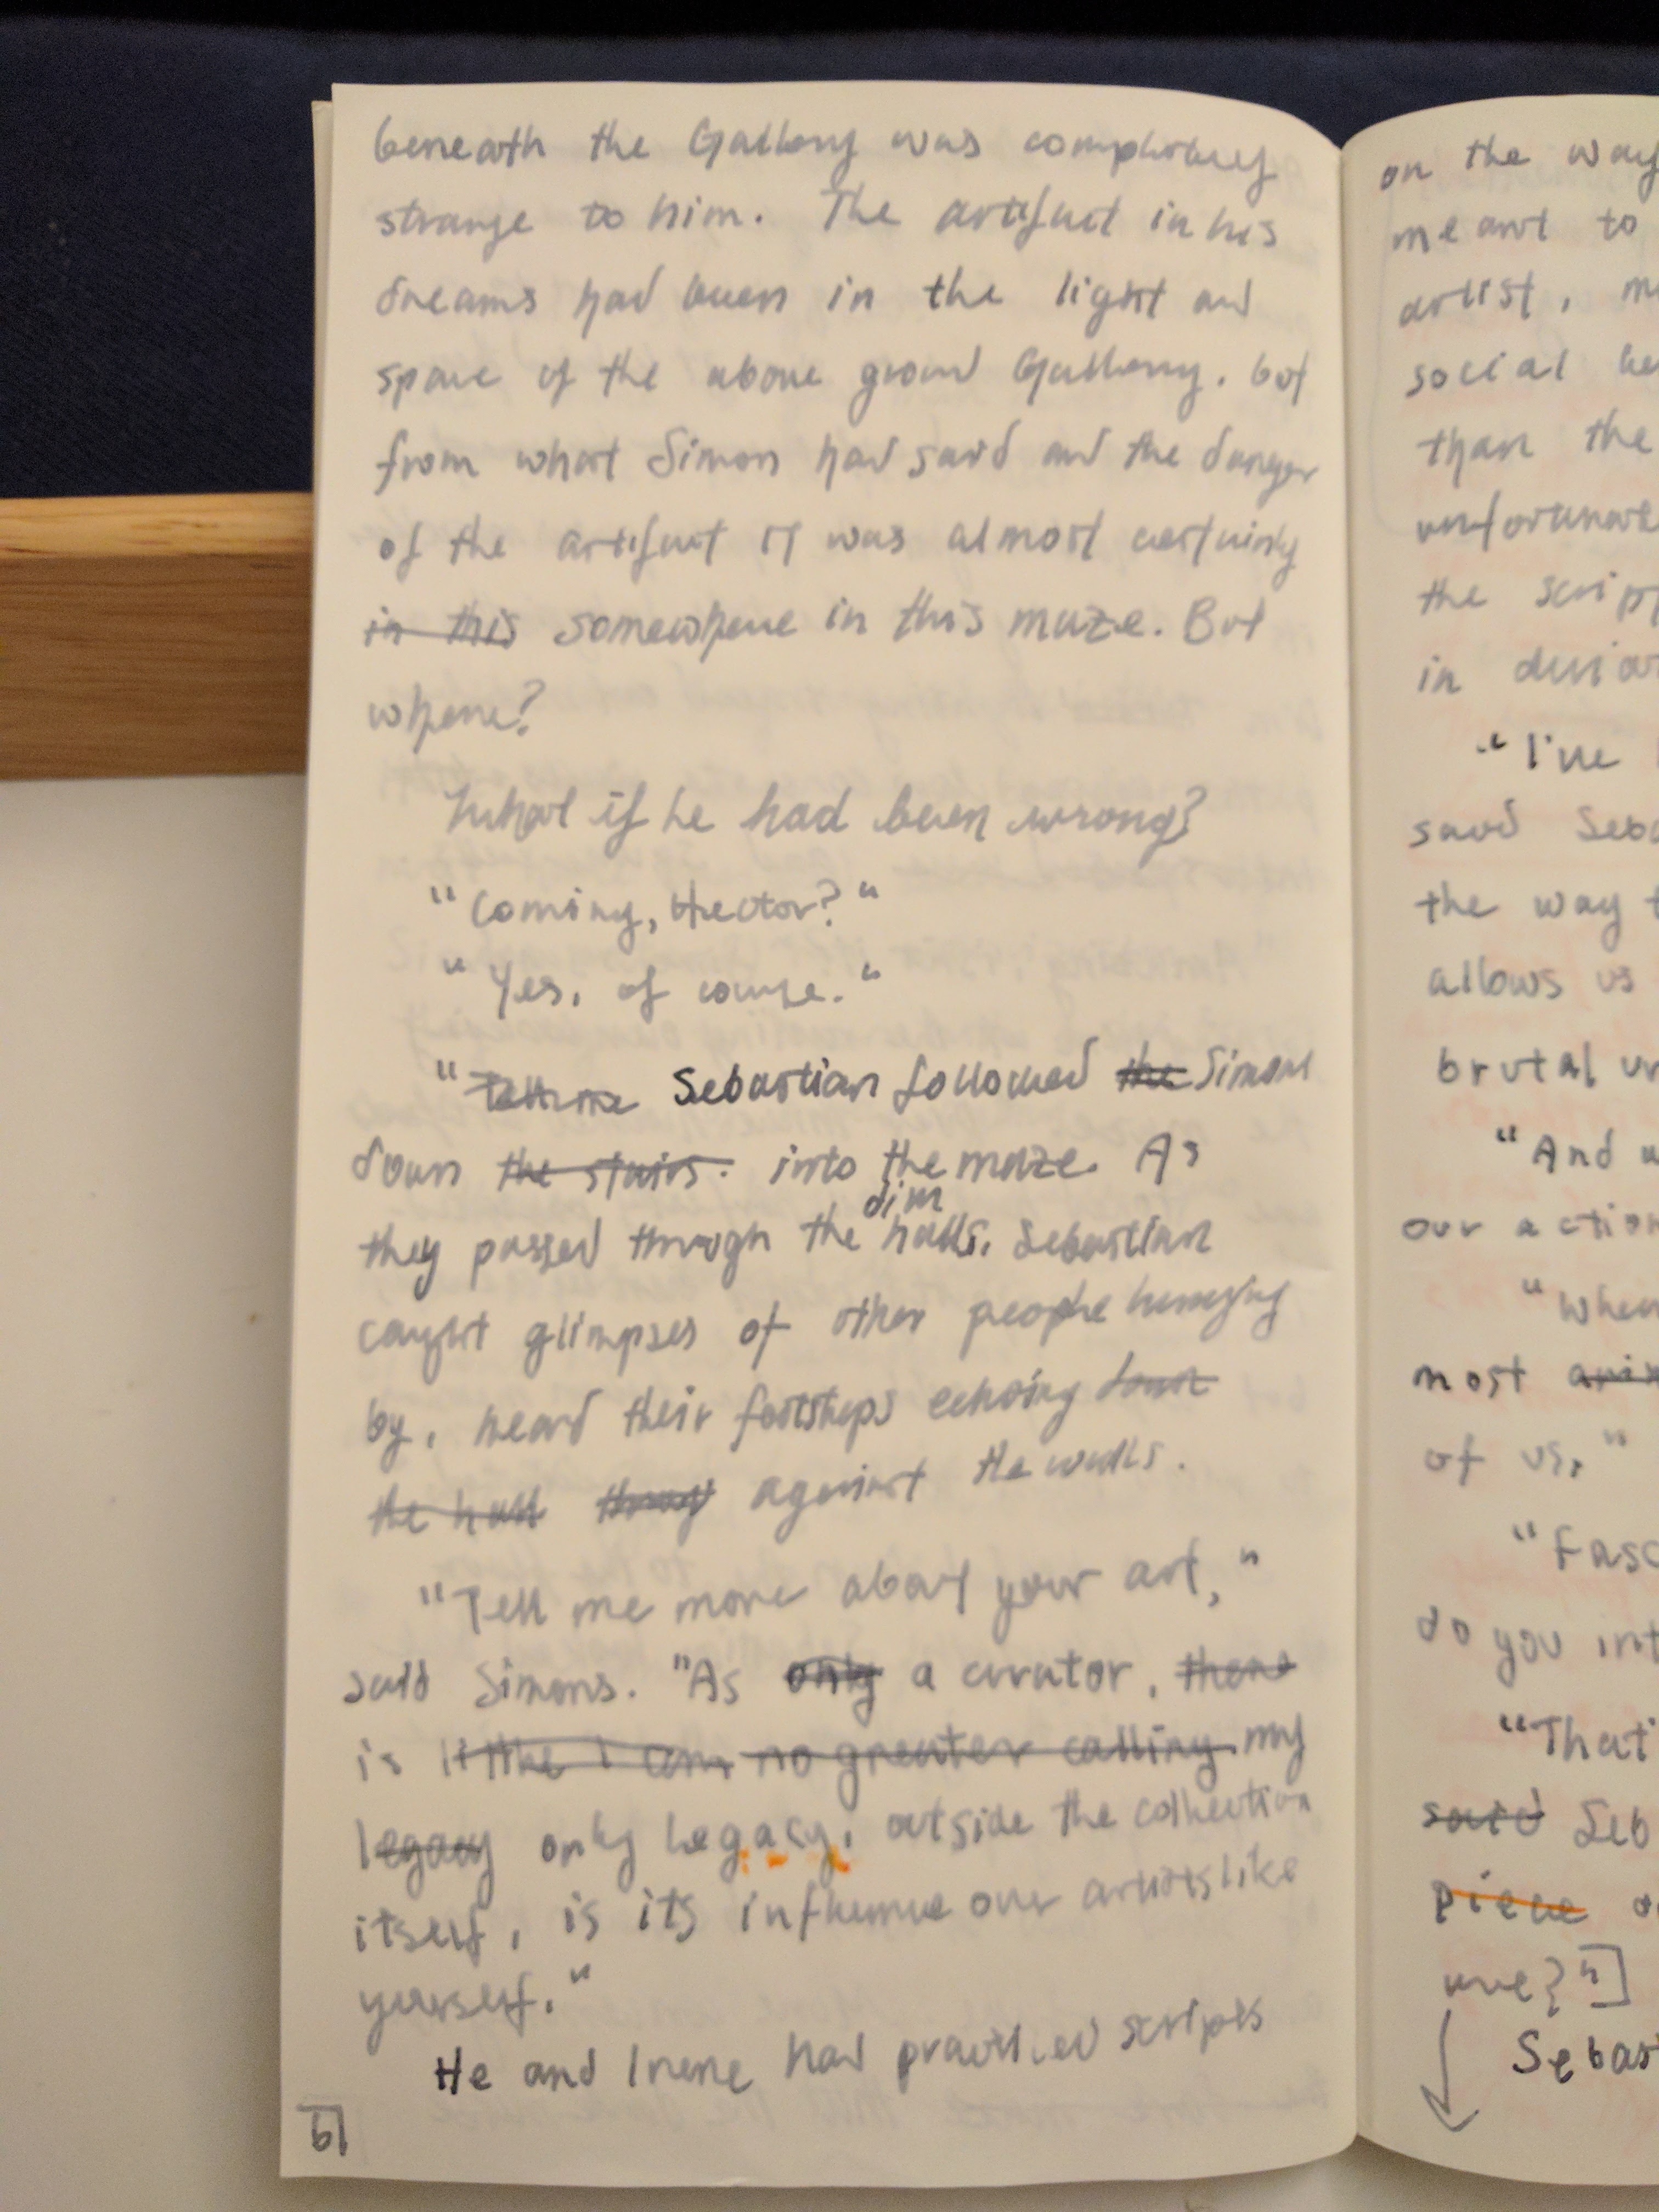 beneath the Gallery was completely
strange to him. The artifact in his
dreams had been in the light and
space of the above ground Gallery. but
from what Simon had said and the danger
of the artifact it was almost certainly
in this somewhere in this maze. But
where?
What if he had been wrong?
"Coming, Hector?"
"Yes, of course."
"Tell me Sebastian followed the Simons
down the stairs. into the maze. As
they passed through the dim halls, Sebastian
caught glimpses of other people hurrying
by, heard their footsteps echoing down
the hall throug against the walls.
"Tell me more about your art,"
said Simons. "As only a curator, there
is little I am no greater calling my
legacy only legacy, outside the collection
itself, is its influence over artists like
yourself."
He and Irene had practiced scripts
61
on the way
meant to
artist, m
social be
than the
unfortunate
the scrip
in
"I've
said Seba
the way t
allows us
brutal un
"And w
our action
"When
most
of us."
"Fasc
do you int
"That'
said Seb
piece
"]
Sebas